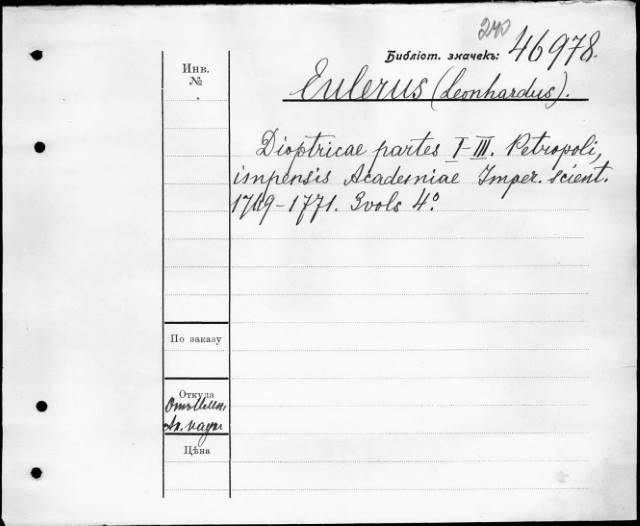 240
Библіот. значекъ: 46978.
Инв.
№
Eulerus (Leonhardus).
Dioptricae partes I-III. Petropoli,
impensis Academiae Imper. scient.
1769-1771. 3vols 4º.
По заказу
Откуда
Отъ Имп.
Ак. наукъ
Цѣна